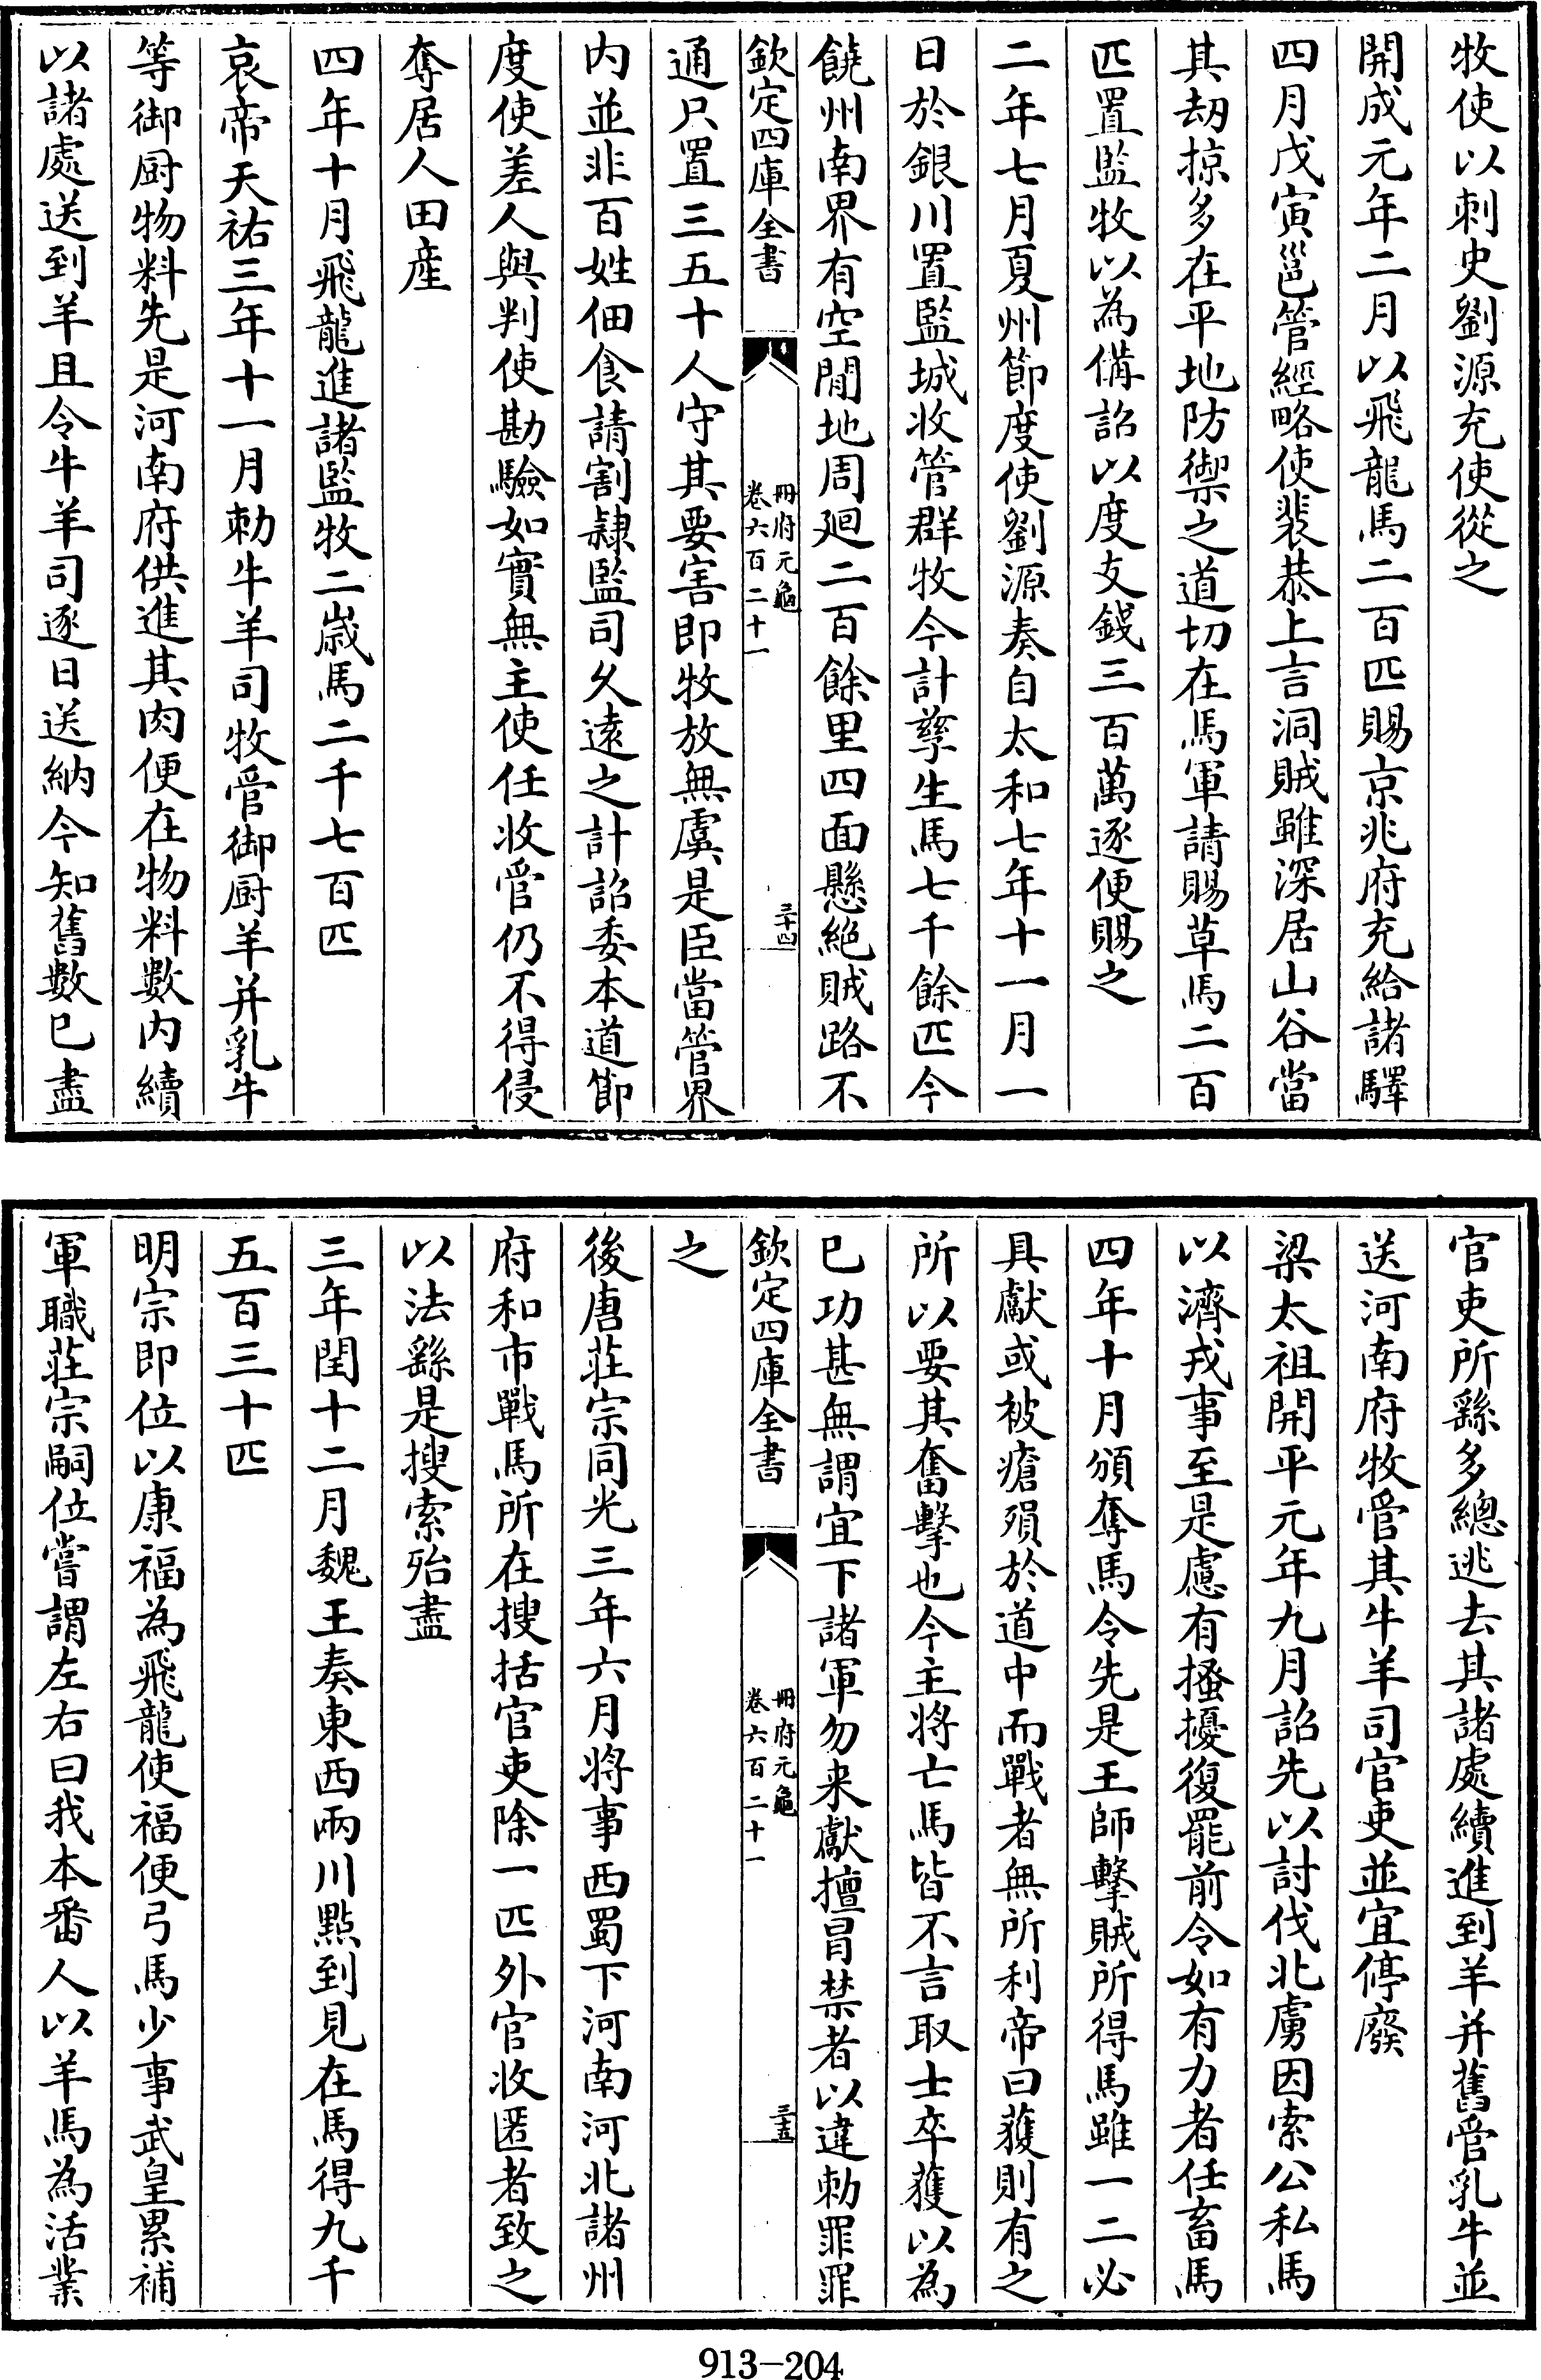 牧使以刺史劉源充使從之
開成元年二月以飛龍馬二百匹賜京兆府充給諸驛
四月戊寅邕管經略使裴恭上言洞賊雖深居山谷當
其劫掠多在平地防禦之道切在馬軍請賜草馬二百
匹置監牧以為備詔以度支錢三百萬逐便賜之
二年七月夏州節度使劉源奏自太和七年十一月一
日於銀川置監城收管群牧今計孳生馬七千餘匹今
饒州南界有空閒地周廻二百餘里四面懸絶賊路不
欽定四庫全書
冊府元龜
卷六百二十一
三十四
通只置三五十人守其要害即牧放無虞是臣當管界
内並非百姓佃食請割隷監司久遠之計詔委本道節
度使差人與判使勘驗如實無主使任收管仍不得侵
奪居人田産
四年十月飛龍進諸監牧二歳馬二千七百匹
哀帝天祐三年十一月勅牛羊司牧管御厨羊并乳牛
等御厨物料先是河南府供進其肉便在物料數内續
以諸處送到羊且令牛羊司逐日送納今知舊數已盡
官吏所繇多總逃去其諸處續進到羊并舊管乳牛並
送河南府牧管其牛羊司官吏並宜停廢
梁太祖開平元年九月詔先以討伐北虜因索公私馬
以濟戎事至是慮有搔擾復罷前令如有力者任畜馬
四年十月頒奪馬令先是王師擊賊所得馬雖一二必
具獻或被瘡殞於道中而戰者無所利帝曰獲則有之
所以要其奮擊也今主將亡馬皆不言取士卒獲以為
已功甚無謂宜下諸軍勿来獻擅冒禁者以違勅罪罪
欽定四庫全書
冊府元龜
卷六百二十一
三十五
之
後唐莊宗同光三年六月將事西蜀下河南河北諸州
府和市戰馬所在搜括官吏除一匹外官收匿者致之
以法繇是搜索殆盡
三年閏十二月魏王奏東西兩川點到見在馬得九千
五百三十匹
明宗即位以康福為飛龍使福便弓馬少事武皇累補
軍職莊宗嗣位嘗謂左右曰我本番人以羊馬為活業
913-204